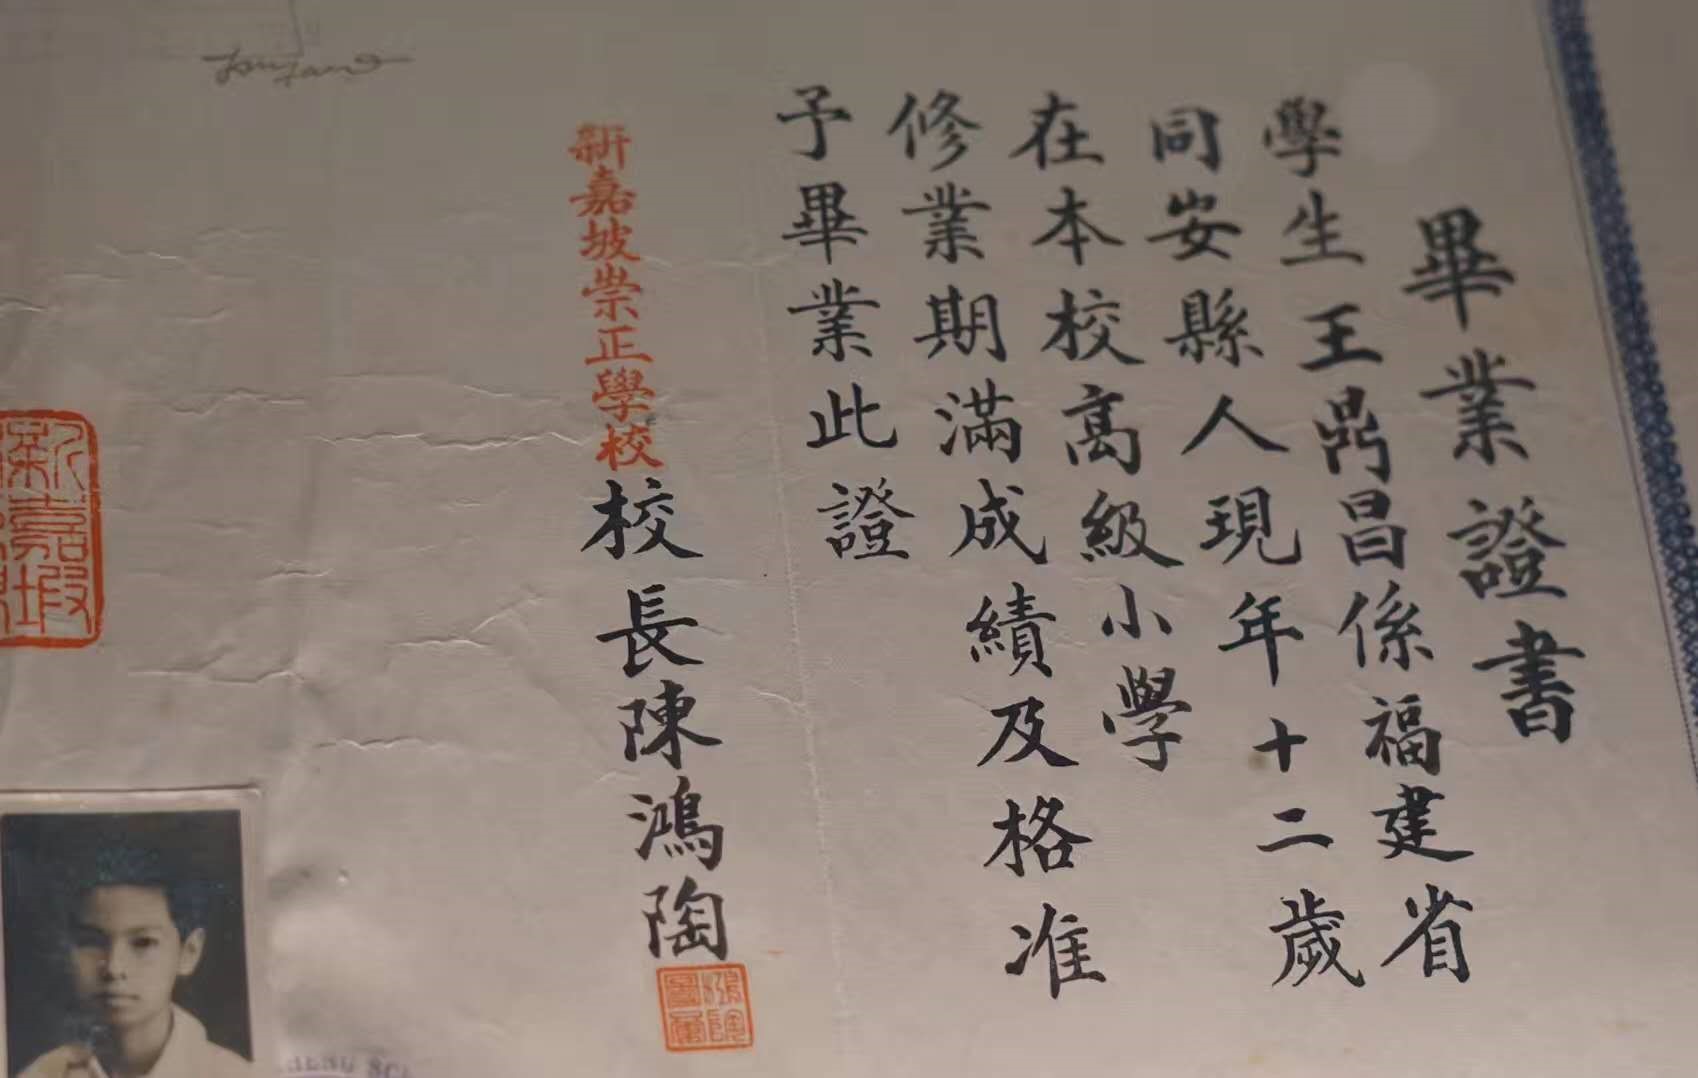 畢業證書
學生王鼎昌係福建省
同安縣人現年十二歲
在本校高級小學
修業期滿成績及格准
予畢業此證
新嘉坡崇正學校校長陳鴻陶
新嘉坡